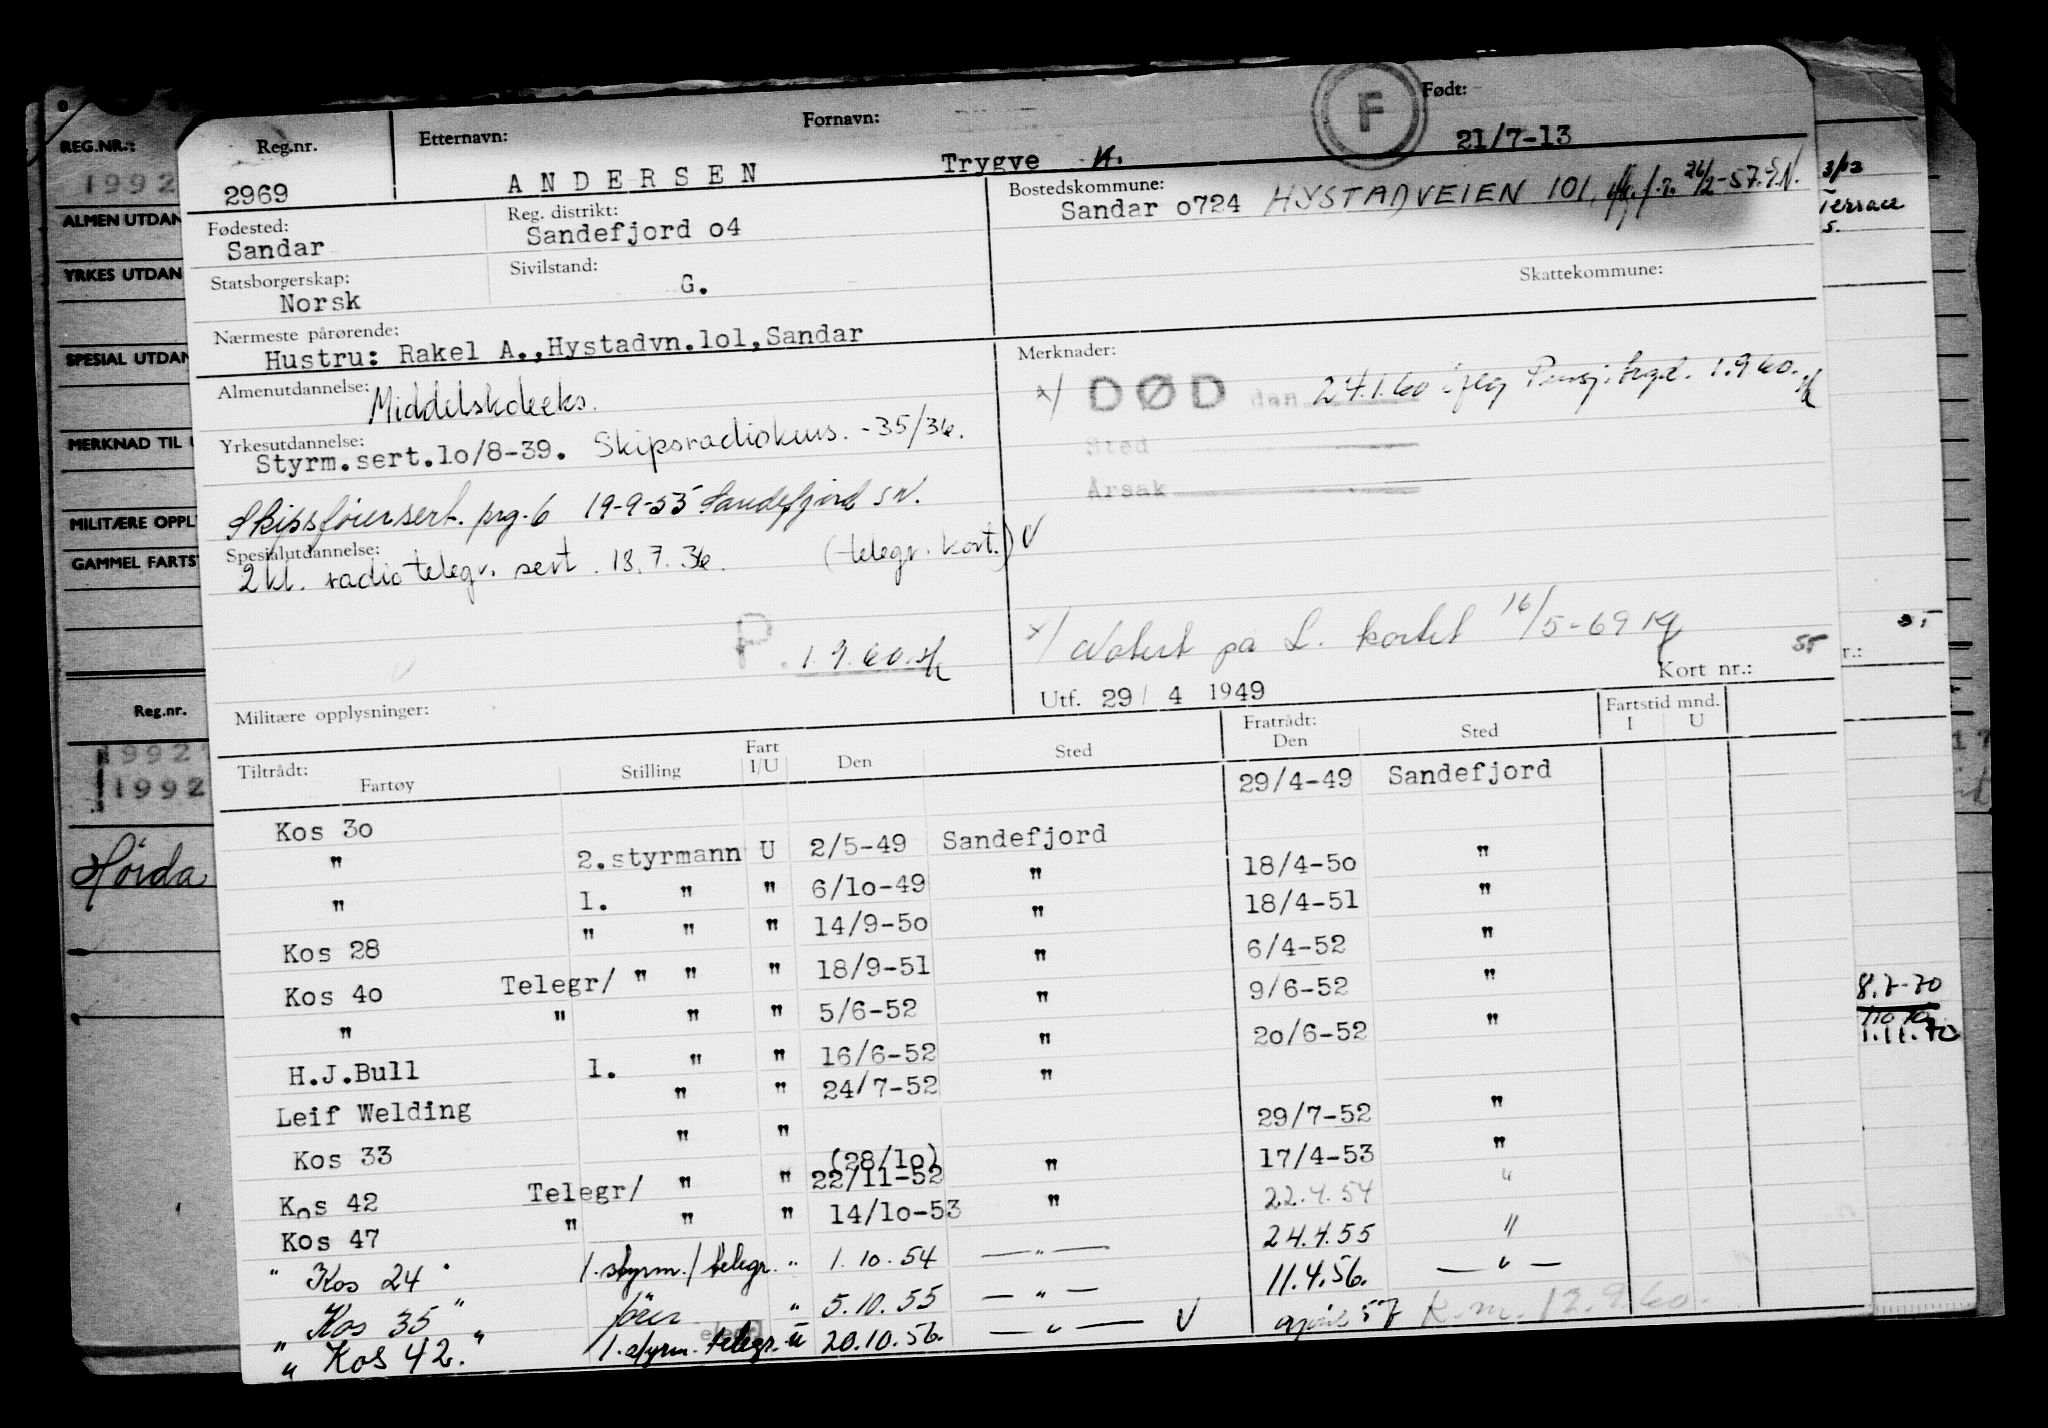 Reg.nr. Etternavn: Fornavn: F Født:
2969 ANDERSEN Trygve A. 21/7-13
Fødested: Reg. distrikt: Bostedskommune:
Sandar Sandefjord o4 Sandar o724 HYSTADVEIEN 101, 26/2-57. S.N.
Statsborgerskap: Sivilstand: Skattekommune:
Norsk G.
Nærmeste pårørende: Merknader:
Hustru: Rakel A.,Hystadvn.lol,Sandar
x/ DØD den 24.1.60 iflg Pensj.trgd. 1.9.60.
Almenutdannelse: Middelskoleeks.
Sted
Yrkesutdannelse:
Styrm.sert.lo/8-39. Skipsradiokurs. -35/36.
Årsak
Skipsførersert. prg. 6 19-9-55 Sandefjord S.N.
Spesialutdannelse:
2 kl. radiotelegr. sert. 13.7.36. (telegr. kort.) V
P. 1.9.60.
x/ Notert på L. kortet 16/5-69
55
Kort nr.:
Militære opplysninger: Utf. 29/ 4 1949
Tiltrådt: Fratrådt: Fartstid mnd.
Fartøy Stilling Fart I/U Den Sted Den Sted I U
29/4-49 Sandefjord
Kos 3o
" 2.styrmann U 2/5-49 Sandefjord
" 1. " " 6/lo-49 " 18/4-5o "
" " " 14/9-5o " 18/4-51 "
Kos 28 Telegr/ " " " 18/9-51 " 6/4-52 "
Kos 4o " " " 5/6-52 " 9/6-52 "
" 1. " " 16/6-52 " 2o/6-52 "
H.J.Bull " " 24/7-52 "
Leif Welding " " 29/7-52 "
Kos 33 Telegr/ " " (28/lo) 22/11-52 " 17/4-53 "
Kos 42 " " " 14/lo-53 " 22.4.54 "
Kos 47 1. styrm./telegr. " 1.10.54 — " — 24.4.55 "
" Kos 24 " fører " 5.10.55 — " — 11.4.56. — " —
" Kos 35 " 1. styrm. telegr. u 20.10.56. — " — V april 57 K.m. 12.9.60.
" Kos 42. "
REG.NR.:
1992
ALMEN UTDAN
YRKES UTDAN
SPESIAL UTDAN
MERKNAD TIL
MILITÆRE OPPL
GAMMEL FARTS
Reg.nr.
1992
1992
Hørda
Terrace
8.7-70
1.11.70